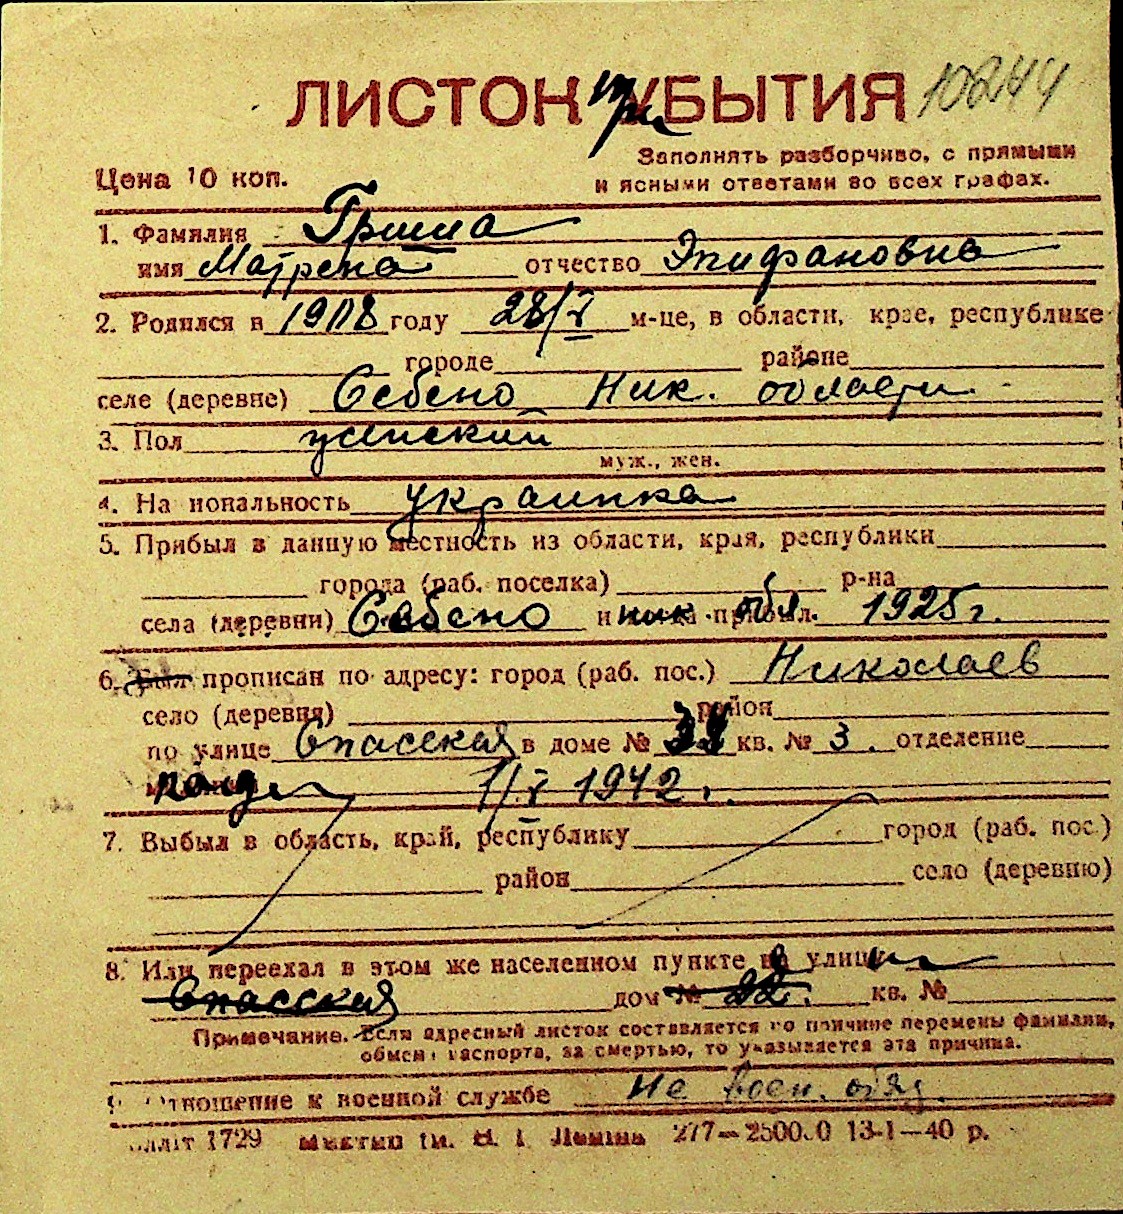 ЛИСТОК при УБЫТИЯ 10244
Заполнять разборчиво, с прямыми
Цена 10 коп. и ясными ответами во всех графах.
1. Фамилия Гриша
имя Матрена отчество Эпифановна
2. Родился в 1918 году 28/V м-це, в области, крае, республике
городе районе
селе (деревне) Себено Ник. области
3. Пол женский
муж., жен.
4. На иональность украинка
5. Прибыл в данную местность из области, края, республики
города (раб. поселка) р-на
села (деревни) Себено ник обл. 1925 г.
6. Был прописан по адресу: город (раб. пос.) Николаев
село (деревня) район
по улице Спасская в доме № кв. № 3. отделение
1/V 1942.
7. Выбыл в область, край, республику город (раб. пос.)
район село (деревню)
8. Или переехал в этом же населенном пункте на улицу
Спасская дом № 22. кв. №
Примечание. Если адресный листок составляется по причине перемены фамилии,
обмена паспорта, за смертью, то указывается эта причина.
9. Отношение к военной службе не воен. обяз.
1729 им. В. І. Леніна 277—25000 13-1—40 р.